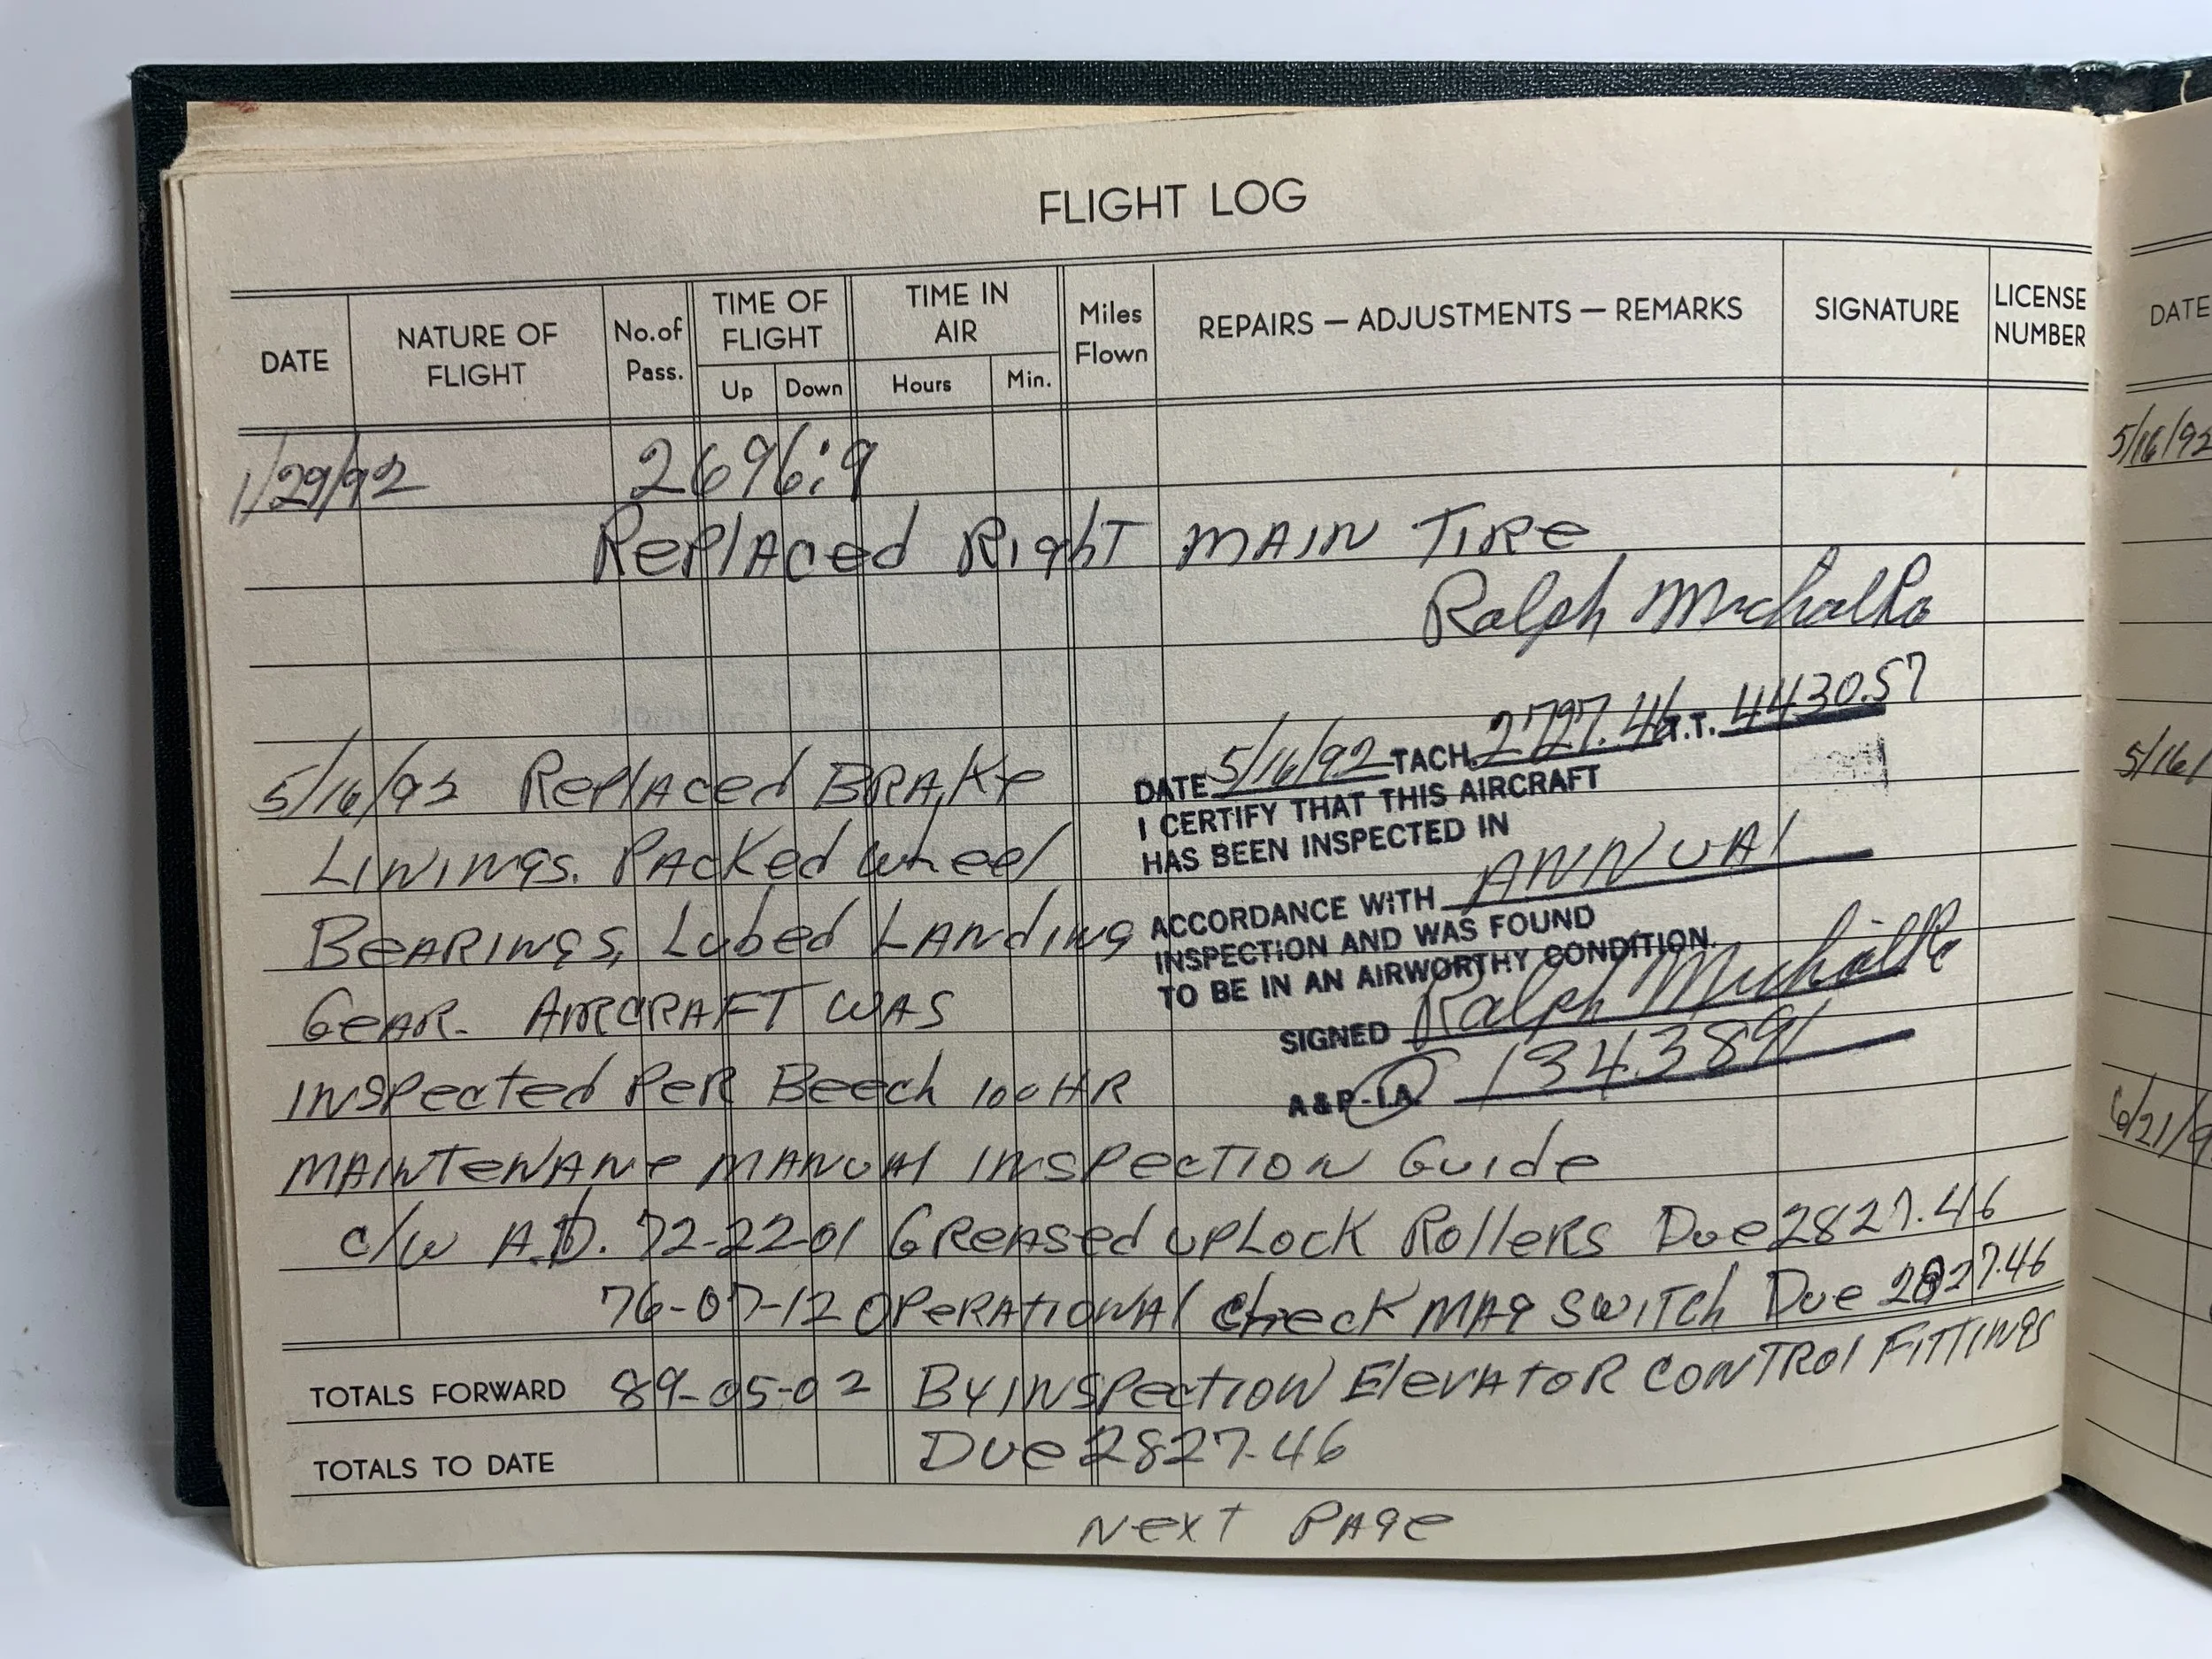 FLIGHT LOG
DATE NATURE OF FLIGHT No.of Pass. TIME OF FLIGHT Up Down TIME IN AIR Hours Min. Miles Flown REPAIRS — ADJUSTMENTS — REMARKS SIGNATURE LICENSE NUMBER
1/29/92 2696:9
Replaced Right MAIN TIRe
Ralph Michalko
5/16/92 Replaced BRAKe
LININgs. PAcKed wheel
BeARINgs, Lubed LANdINg
GeAR. AIRCRAFT WAS
INSpected PeR Beech 100 HR
MAINTeNANce MANUAl INSpecTION Guide
c/w A.D. 72-22-01 GReASed upLock RolleRs Due 2827.46
76-07-12 OpeRATIONAl check MAg SwITch Due 2827.46
TOTALS FORWARD 89-05-02 By INSpecTION ElevAToR CONTRol FITTINgs
TOTALS TO DATE Due 2827.46
NexT PAge
DATE 5/16/92 TACH. 2727.46 T.T. 4430.57
I CERTIFY THAT THIS AIRCRAFT
HAS BEEN INSPECTED IN
ACCORDANCE WITH ANNUAl
INSPECTION AND WAS FOUND
TO BE IN AN AIRWORTHY CONDITION.
SIGNED Ralph Michalko
A & P - I.A. 1343891
DATE
5/16/92
5/16/
6/21/9